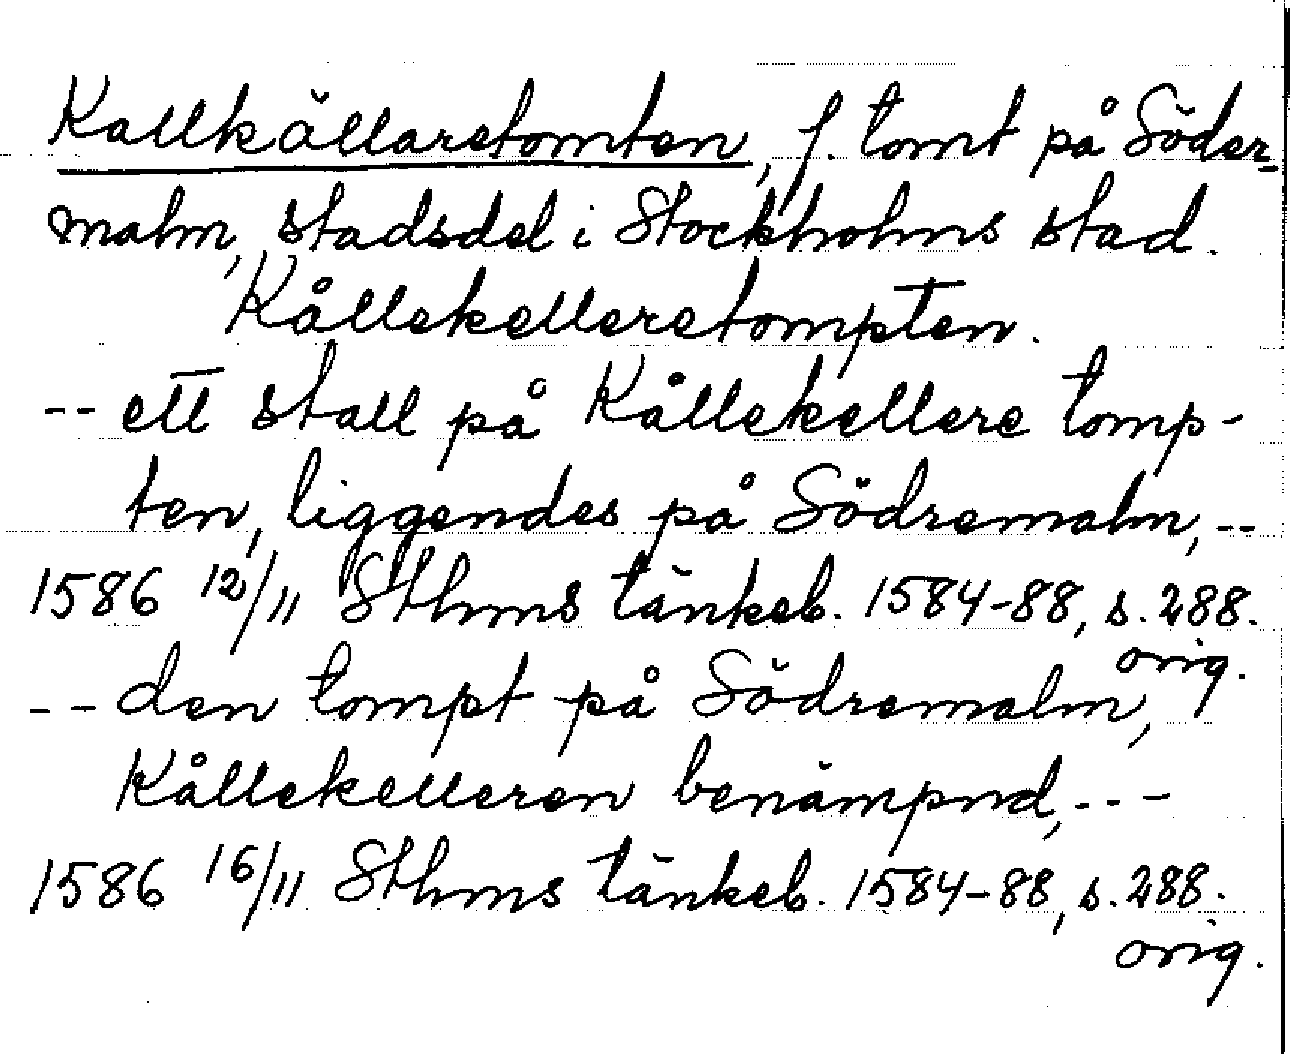 Kallkällaretomten, f. tomt på Söder-
malm, stadsdel i Stockholms stad.
Kållekelleretompten.
-- ett stall på Kållekellere tomp-
ten, liggendes på Södremalm, --
1586 12/11 Sthms tänkeb. 1584-88, s. 288.
orig.
-- den tompt på Södremalm,
Kållekelleren benämpnd, ---
1586 16/11 Sthms tänkeb. 1584-88, s. 288.
orig.